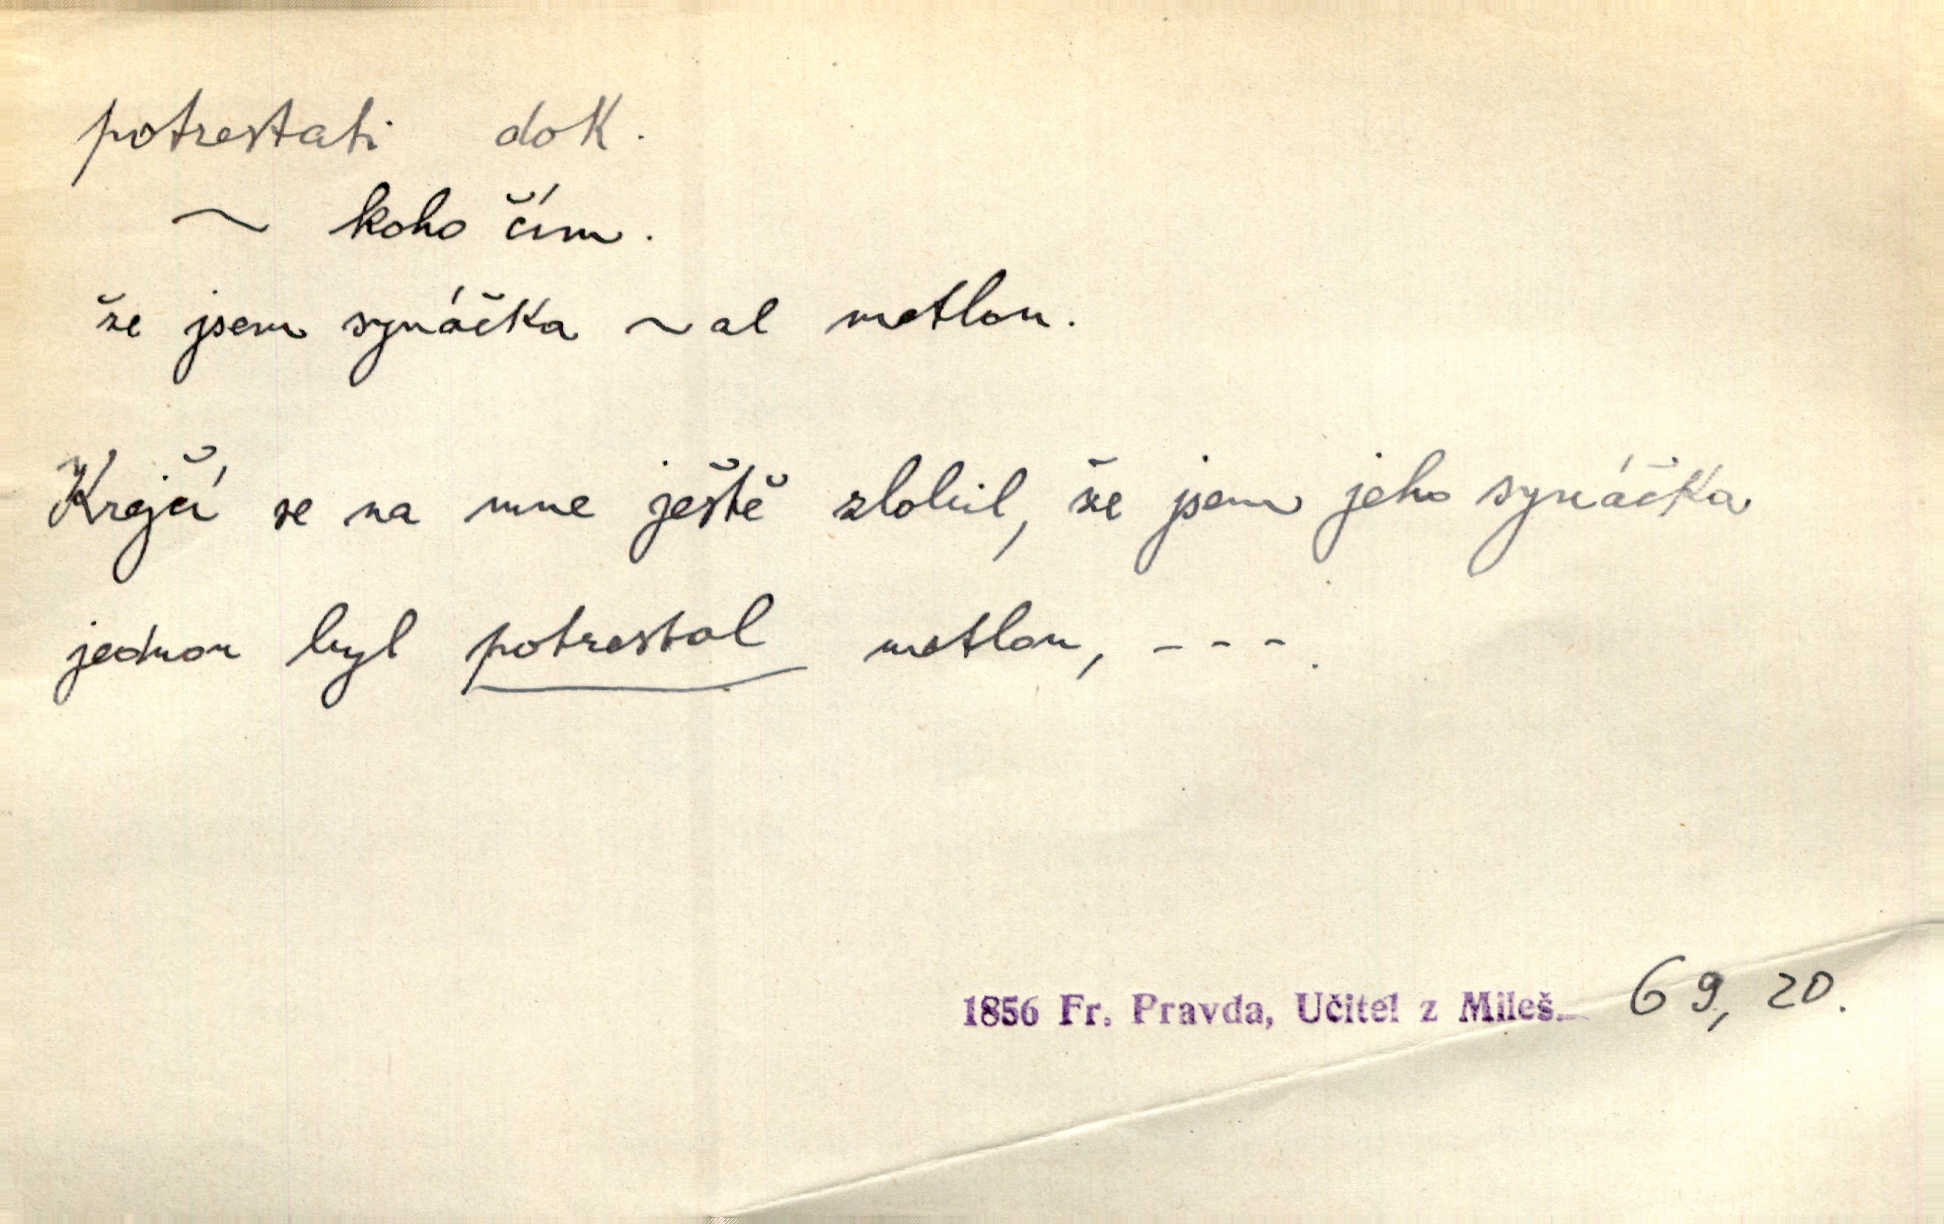 potrestati dok.
~ koho čím.
že jsem synáčka ~al metlou.
Krejčí se na mne ještě zlobil, že jsem jeho synáčka
jednou byl potrestal metlou, ---.
1856 Fr. Pravda, Učitel z Mileš. 69, 20.